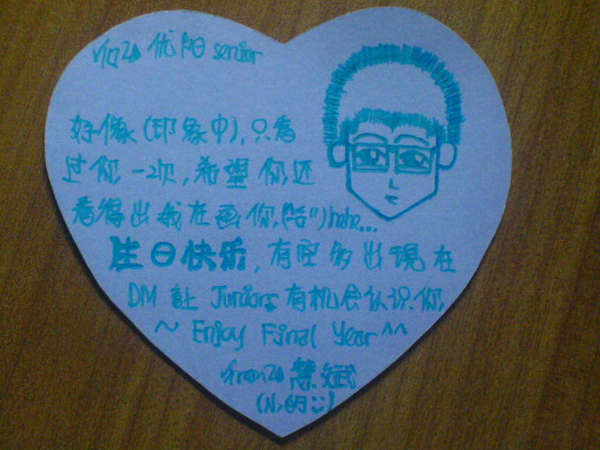 优阳 senior
好像(印象中),只看
过你一2次,希望你还
看得出我在画你, hehe...
生日快乐,有空多出現在
DM 让 Juniors 有机会认识你,
~ Enjoy Final Year ^^
from 慧斌
的:)